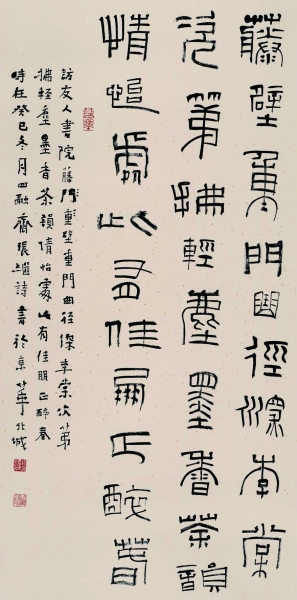 藤壁重門曲徑深李棠
次第拂輕塵墨香茶韻
情怡處此有佳朋正醉春
訪友人書院藤壁重門曲径深李棠次第
拂輕塵墨香茶韻情怡處此有佳朋正醉春
時在癸巳冬月四融齋張繼詩書於京華北城